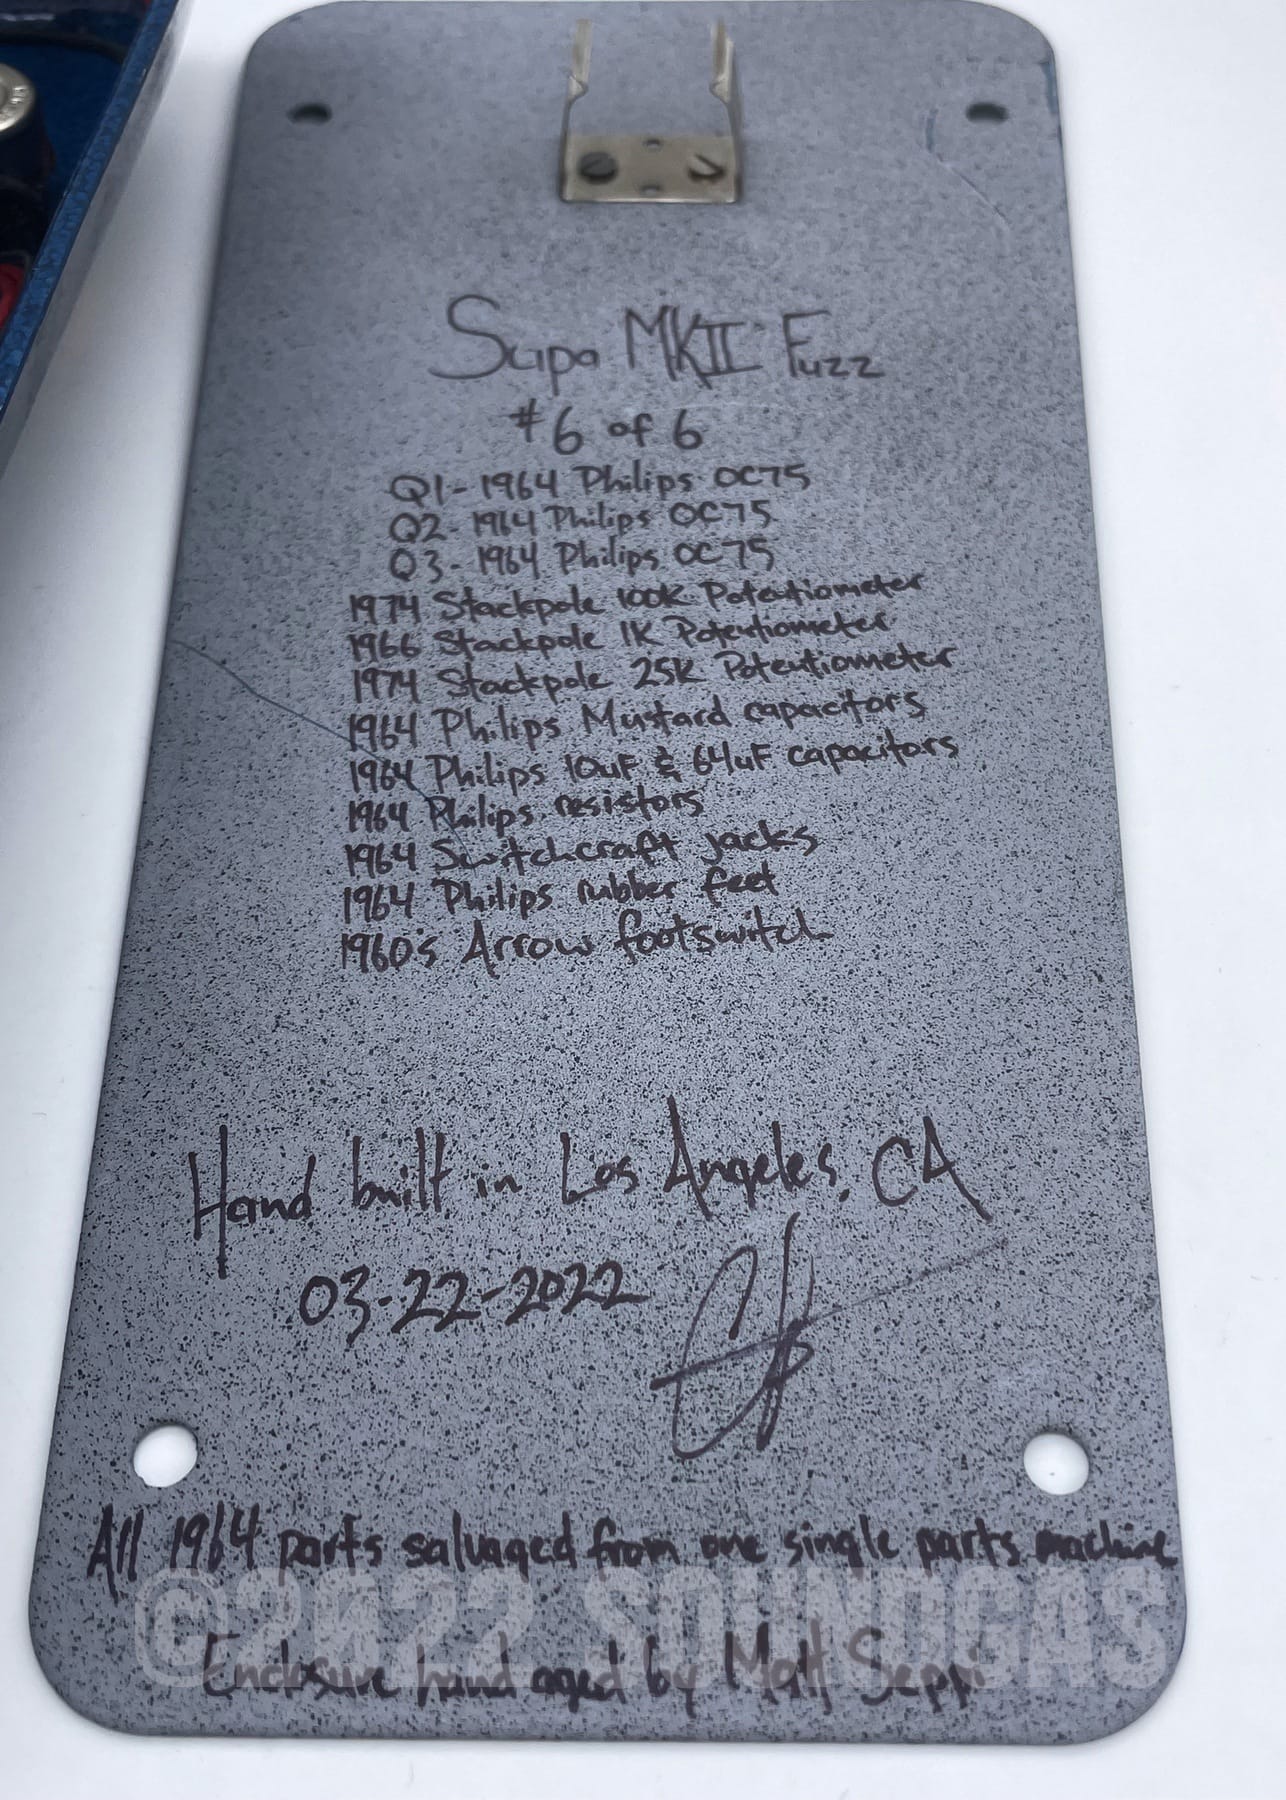 Supa MKII Fuzz
#6 of 6
Q1-1964 Philips OC75
Q2-1964 Philips OC75
Q3-1964 Philips OC75
1974 Stackpole 100K Potentiometer
1966 Stackpole 1K Potentiometer
1974 Stackpole 25K Potentiometer
1964 Philips Mustard capacitors
1964 Philips 10uF & 64uF capacitors
1964 Philips resistors
1964 Switchcraft jacks
1964 Philips rubber feet
1960's Arrow footswitch
Hand built in Los Angeles, CA
03-22-2022
All 1964 parts salvaged from one single parts machine
©2022 SOUNDGAS
Enclosure hand aged by Matt Seppi